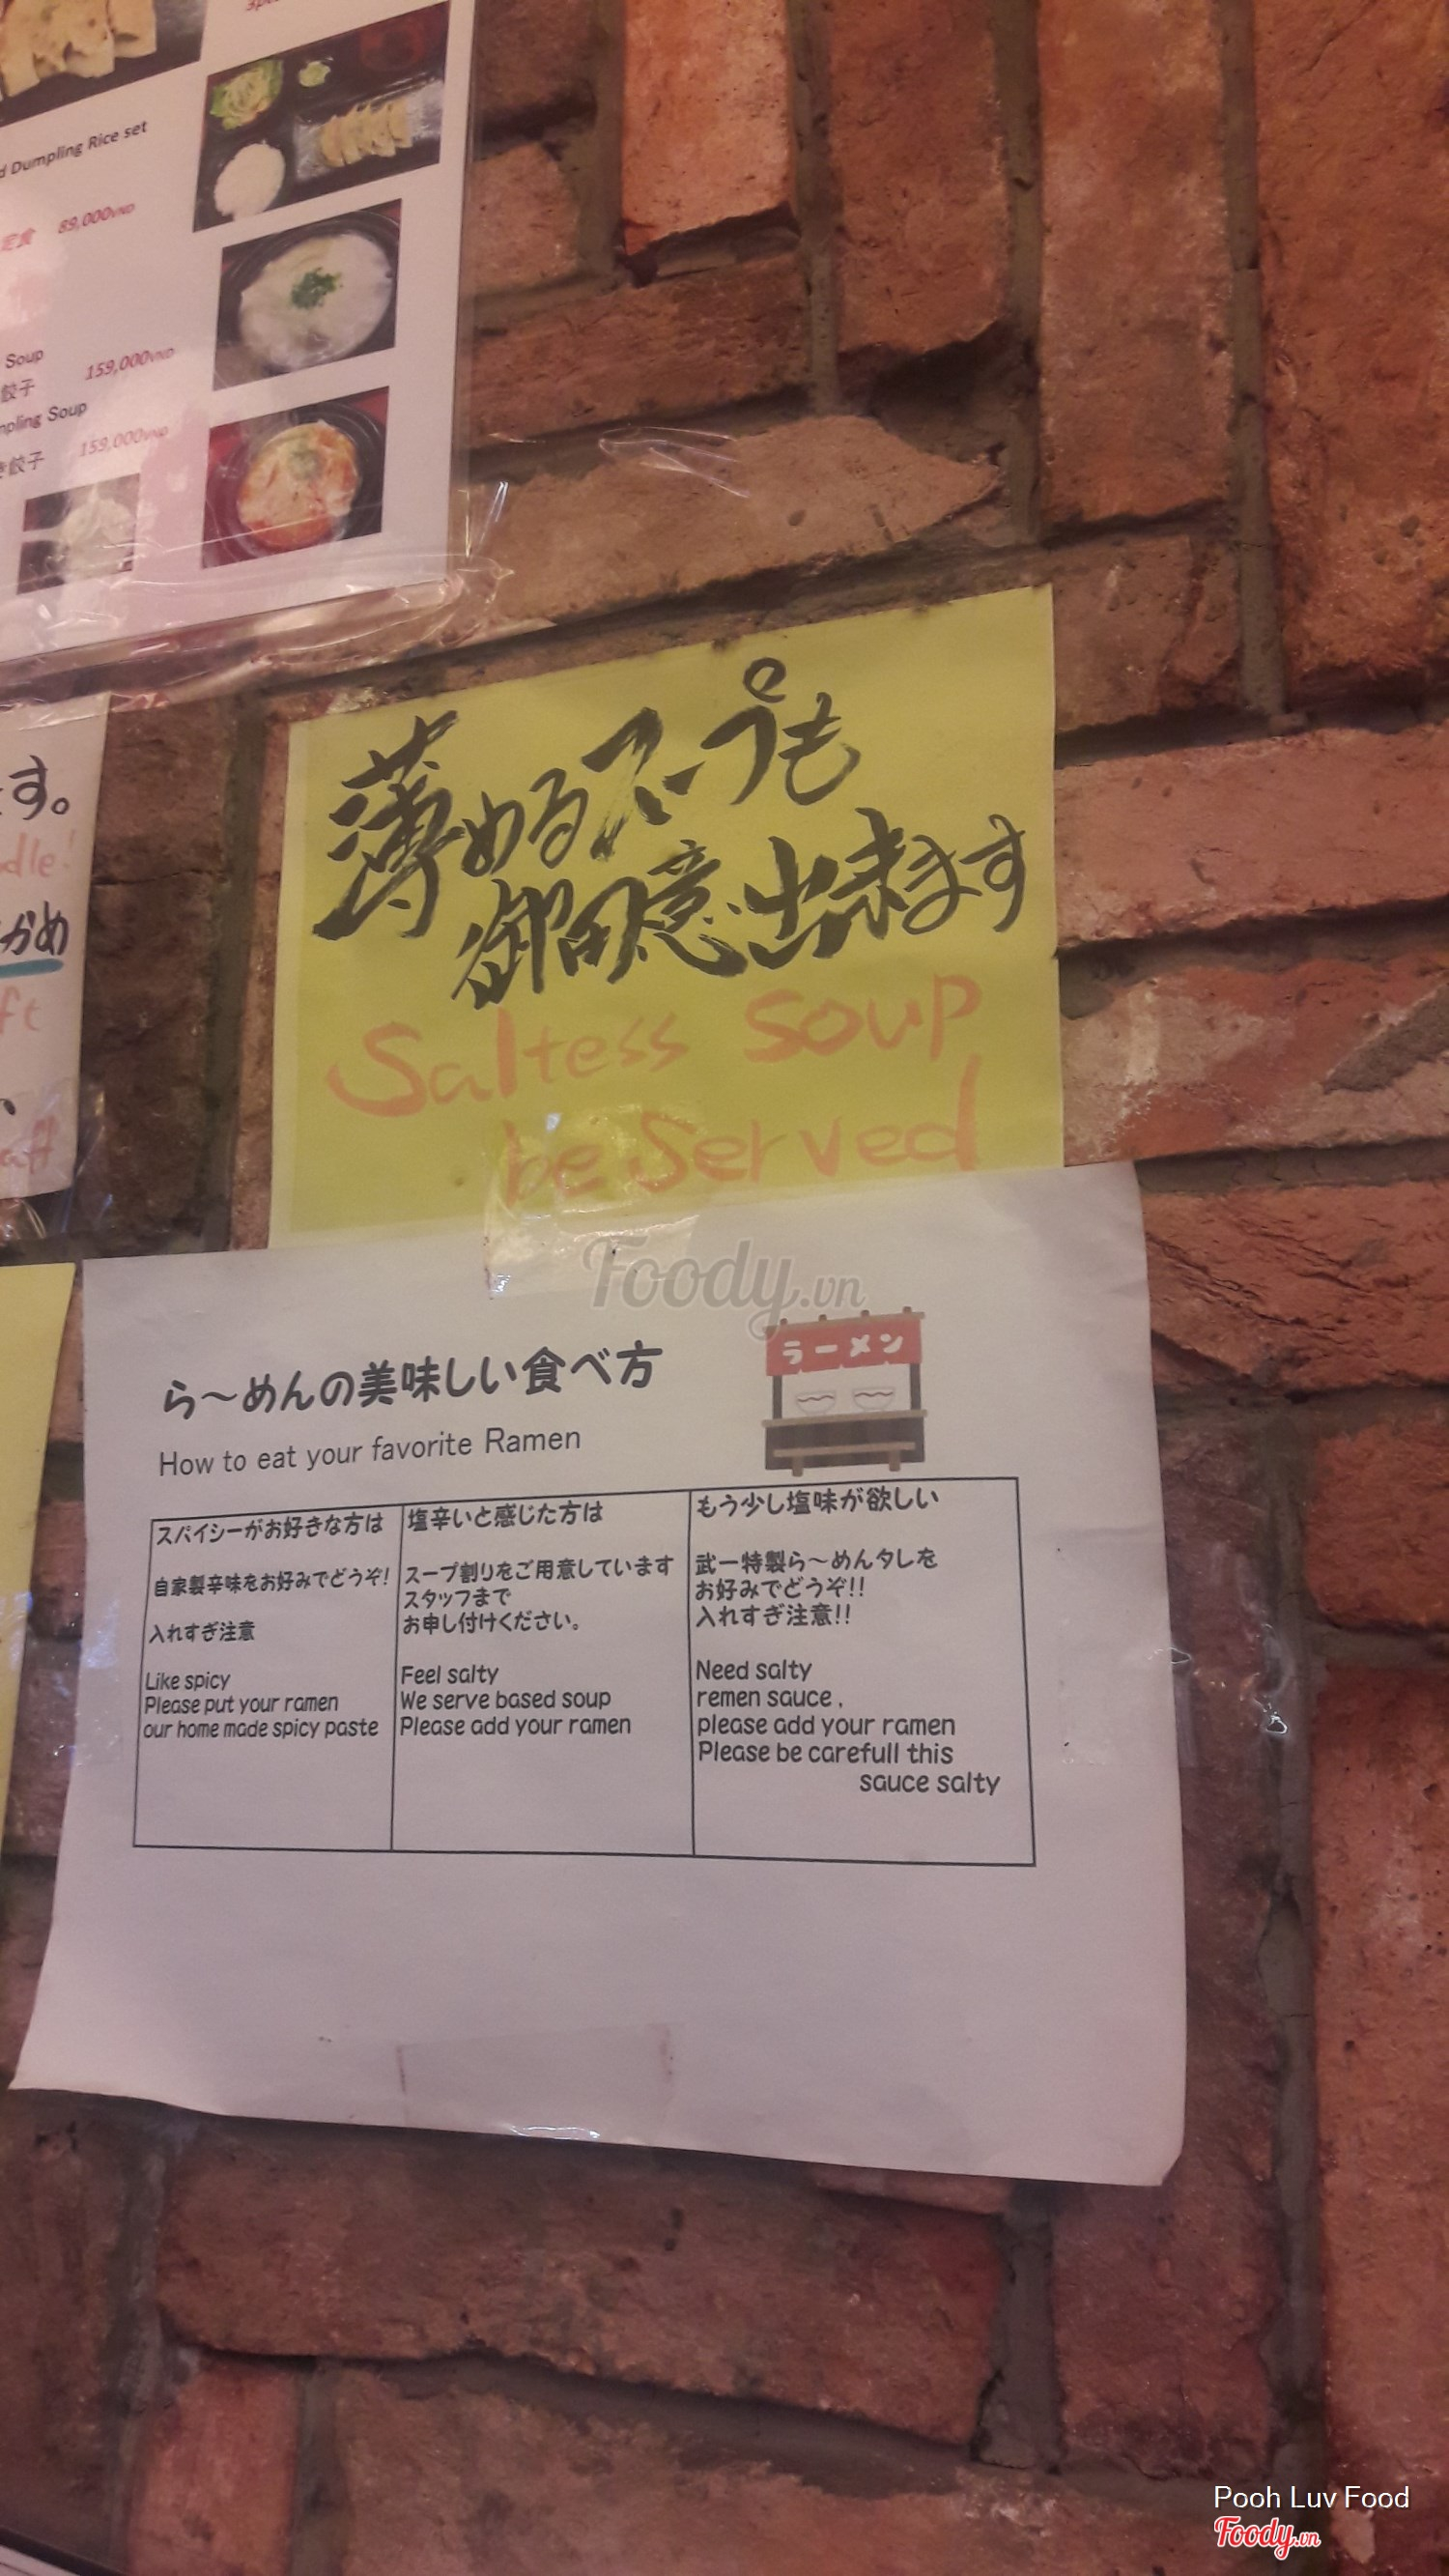 Dumpling Rice set
定食 89,000VND
Soup
159,000VND
餃子
Soup
159,000VND
餃子
す。
かめ
薄めるスープも
御用意出来ます
Saltess soup
be served
Foody.vn
ら〜めんの美味しい食べ方
How to eat your favorite Ramen
ラーメン
スパイシーがお好きな方は
自家製辛味をお好みでどうぞ!
入れすぎ注意
Like spicy
Please put your ramen
our home made spicy paste
塩辛いと感じた方は
スープ割りをご用意しています
スタッフまで
お申し付けください。
Feel salty
We serve based soup
Please add your ramen
もう少し塩味が欲しい
武一特製ら〜めんタレを
お好みでどうぞ!!
入れすぎ注意!!
Need salty
remen sauce ,
please add your ramen
Please be carefull this
sauce salty
Pooh Luv Food
Foody.vn